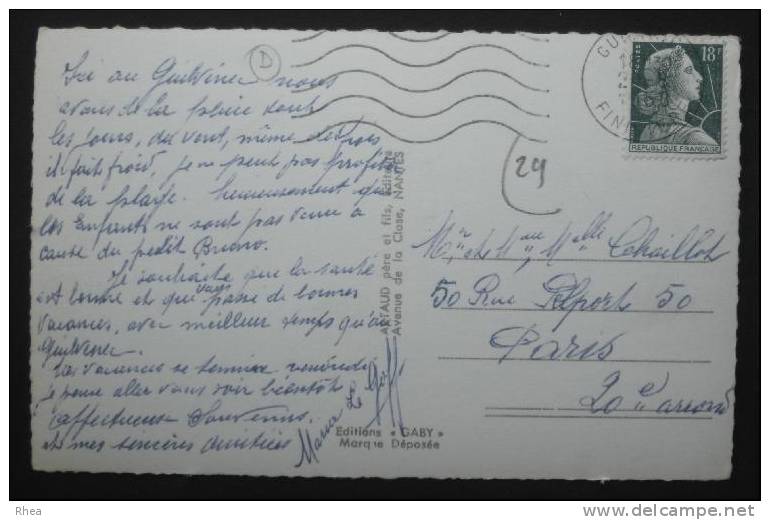 Ici au Guilvinec nous
avons de la pluie tout
les jours, du vent, même des fois
il fait froid, je ne peut pas profiter
de la plage. heureusement que
les Enfants ne sont pas venu à
cause du petit Bruno.
Je souhaite que la santé
est bonne et que vous passé de bonnes
vacances, avec meilleur temps qu'au
Guilvinec.
Les vacances se termine vendredi
je pense aller vous voir bientôt
affectueux Souvenirs.
et mes sincères amitiées
Maria Le Goff
D
29
ARTAUD père et fils, Éditeurs
Avenue de la Close, NANTES
Editions « GABY »
Marque Déposée
GU
FIN
18F
POSTES
REPUBLIQUE FRANÇAISE
Mr et Mme, Melle Chaillot
50 Rue Pelport 50
Paris
20e arron
Rhea
http://www.delcampe.net